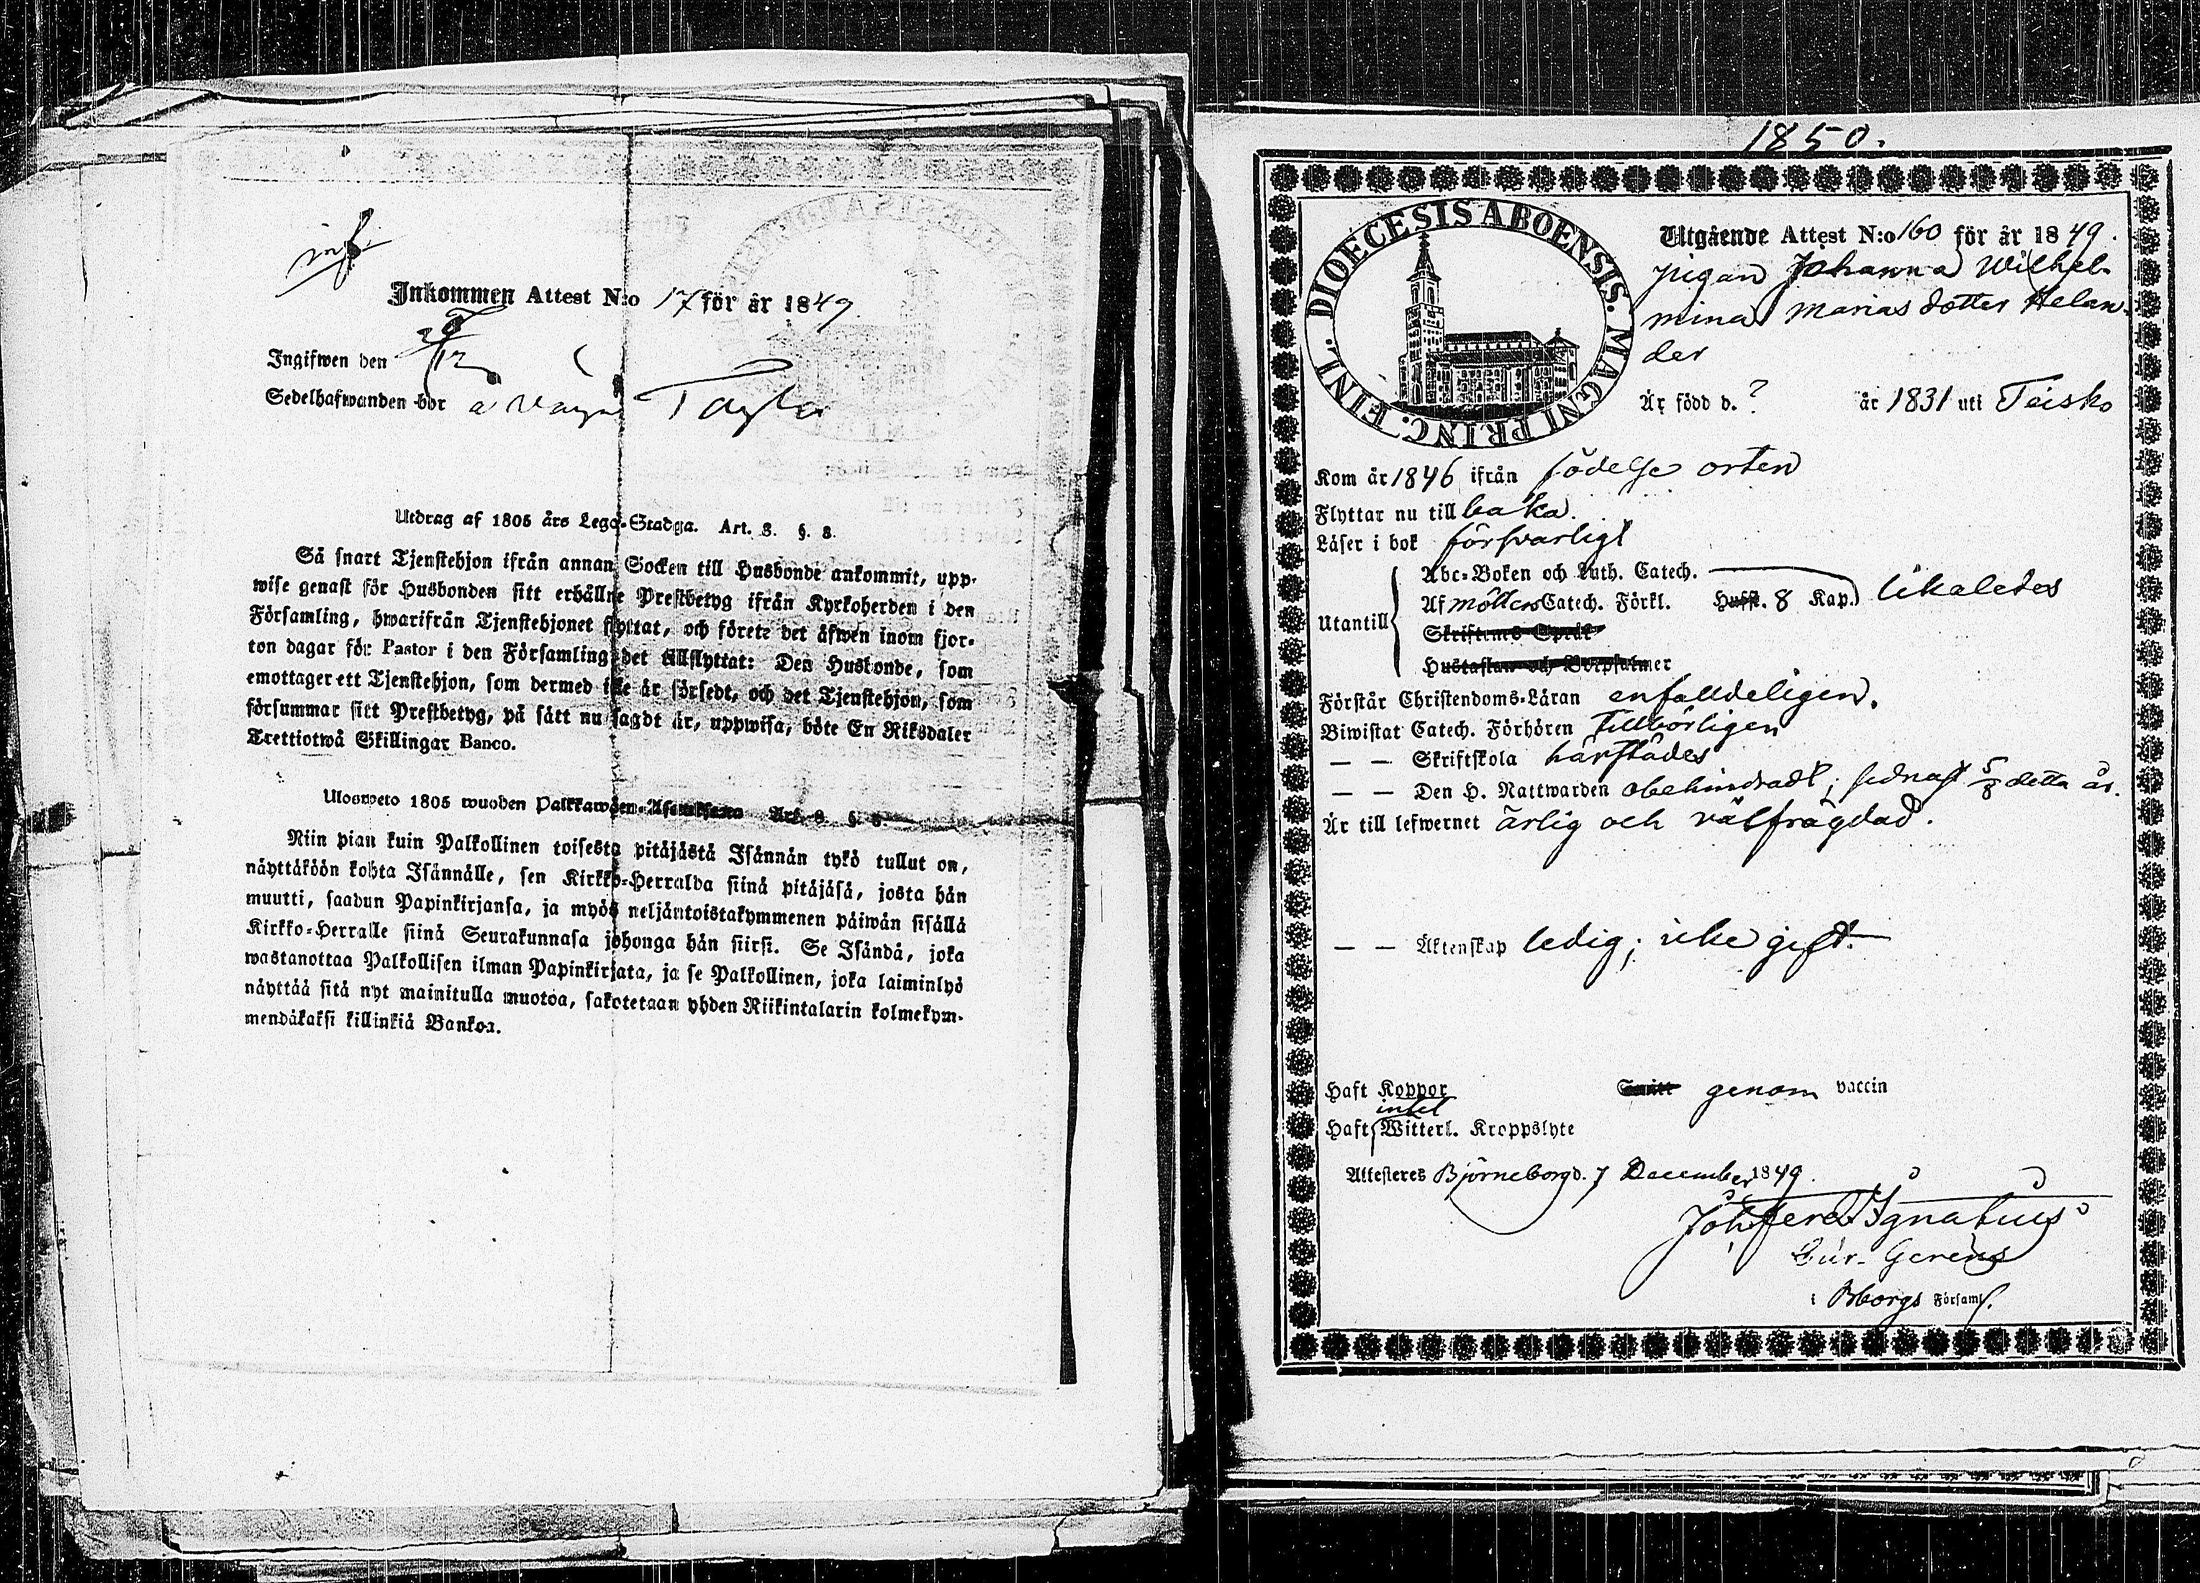 inf.
Inkommen Attest N:o 17 för år 1849.
Ingifwen den
Sedelhafwanden bor
Utdrag af 1805 års Lego-Stadga. Art. 3. §. 8.
Så snart Tjenstehjon ifrån annan Socken till Husbonde ankommit, upp-
wise genast för Husbonden sitt erhållne Prestbetyg ifrån Kyrkoherden i den
Församling, hwarifrån Tjenstehjonet flyttat, och förete det äfwen inom fjor-
ton dagar för Pastor i den Församling det tillflyttat: Den Husbonde, som
emottager ett Tjenstehjon, som dermed icke är försedt, och det Tjenstehjon, som
försummar sitt Prestbetyg, på sätt nu sagdt är, uppwisa, böte En Riksdaler
Trettiotwå Skillingar Banco.
Ulosweto 1805 wuoden Palkkawäen-Asetuksesta Art. 3. §. 8.
Niin pian kuin Palkollinen toisesta pitäjästä Isännän tykö tullut on,
näyttäköön kohta Isännälle, sen Kirkko-Herralda siinä pitäjäsä, josta hän
muutti, saadun Papinkirjansa, ja myös neljäntoistakymmenen päiwän sisällä
Kirkko-Herralle siinä Seurakunnasa johonga hän siirsi. Se Isändä, joka
wastanottaa Palkollisen ilman Papinkirjata, ja se Palkollinen, joka laiminlyö
näyttää sitä nyt mainitulla muotoa, sakotetaan yhden Riikintalarin kolmekym-
mendäkaksi killinkiä Bankoa.
1850.
DIOECESIS ABOENSIS. MAGNI PRINC. FINL.
Utgående Attest N:o 160 för år 1849.
pigan Johanna Wilhel-
mina Mariasdotter Helan-
der
Är född d. ? år 1831 uti Teisko
Kom år 1846 ifrån födelse orten
Flyttar nu till baka.
Läser i bok försvarligt
Abc-Boken och Luth. Catech.
Utantill
Af Möllers Catech. Förkl. Husst. 8 Kap. likaledes
Skriftenes Språk
Hustaflan och Botpsalmer
Förstår Christendoms-Läran enfalldeligen.
Biwistat Catech. Förhören Tillbörligen
— — Skriftskola härstädes
— — Den H. Nattwarden obehindradt; sednast 5/8 detta år.
Är till lefwernet ärlig och välfrägdad.
— — Äktenskap ledig; icke gift.
Haft Koppor genom vaccin
intet
Haft Witterl. Kroppslyte
Attesteres Björneborg d. 7 December 1849.
Joh. Ferd. Ignatius
Cur. Gerens
i Bborgs Församl.